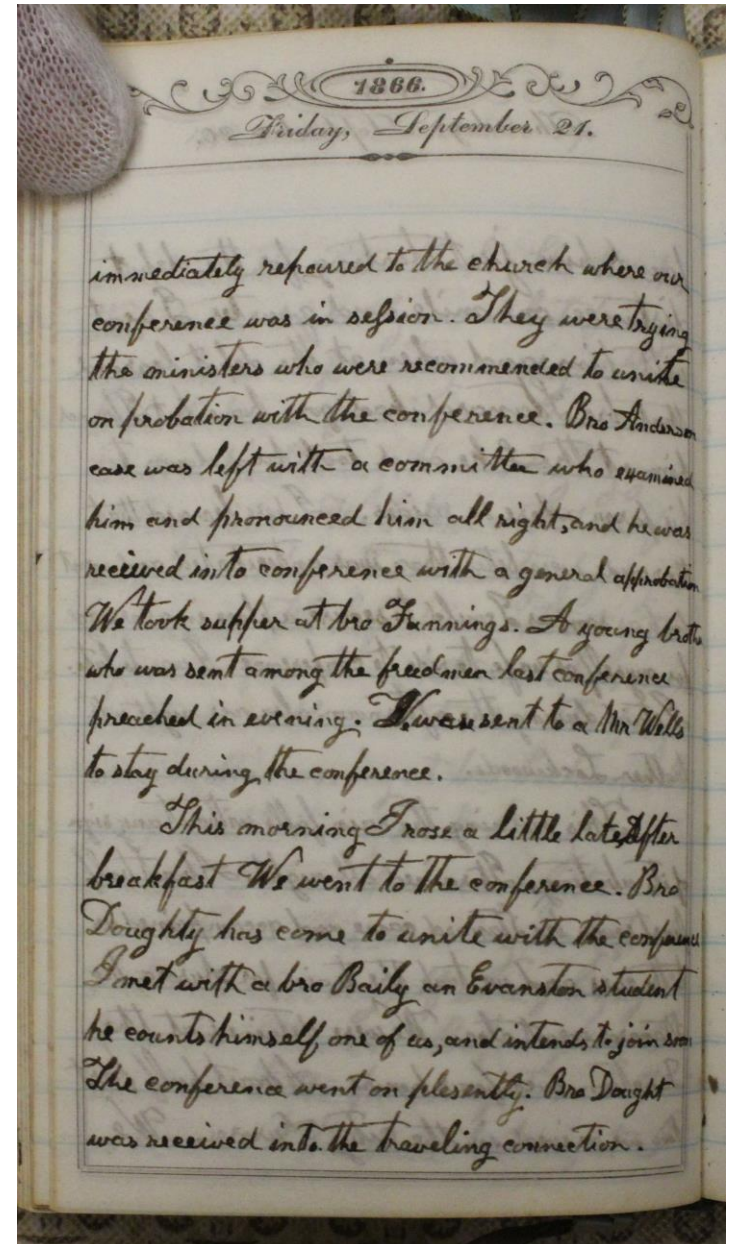 1866.
Friday, September 21.
immediately repaired to the church where our
conference was in session. They were trying
the ministers who were recommended to unite
on probation with the conference. Bro Anderson
case was left with a committee who examined
him and pronounced him all right, and he was
received into conference with a general approbation
We took supper at bro Funnings. A young broth
who was sent among the freedmen last conference
preached in evening. was sent to a Mr Wells
to stay during the conference.
This morning I rose a little late, After
breakfast We went to the conference. Bro
Doughty has come to unite with the conference
I met with a bro Baily an Evanston student
he counts himself one of us, and intends to join soon
The conference went on plesently. Bro Dought
was received into the traveling connection.